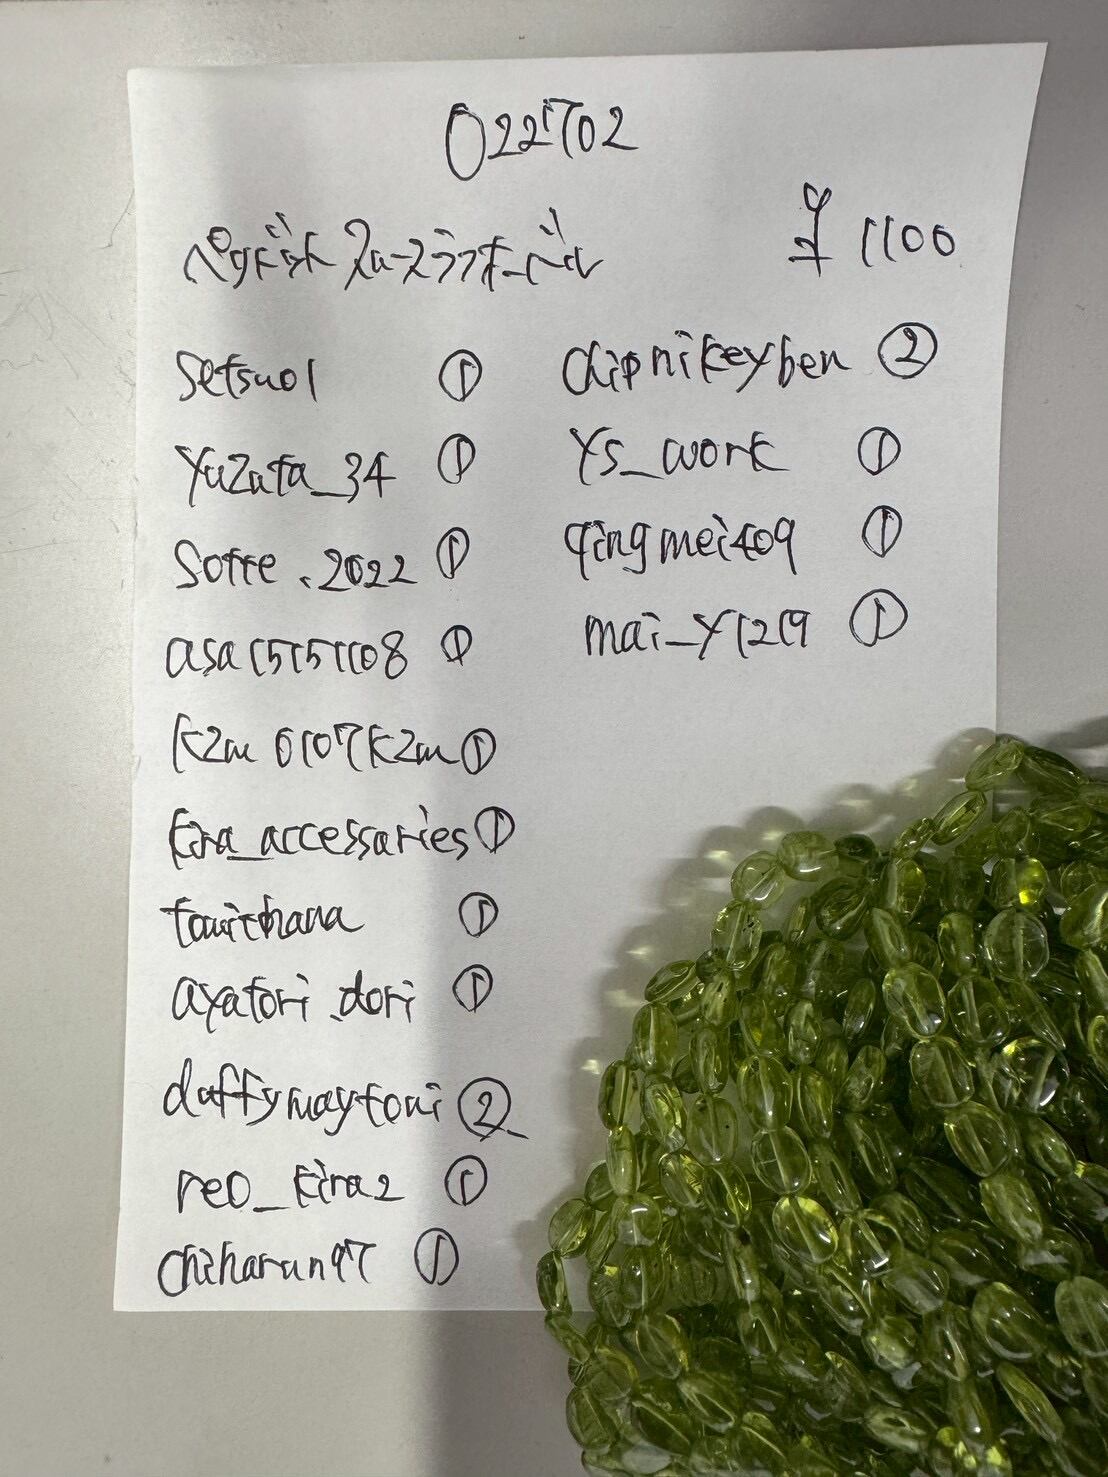 022702
ペリドット スムースラフオーバル ¥1100
setsuo1 ①
yuzuta_34 ①
sotte.2022 ①
asa15151108 ①
kzm0107kzm ①
kira_accessaries ①
tomichana ①
ayatori.dori ①
duffymaytomi ②
reo_kira2 ①
chiharun97 ①
chipnikeyben ②
ys_work ①
qingmei409 ①
mai_y1219 ①